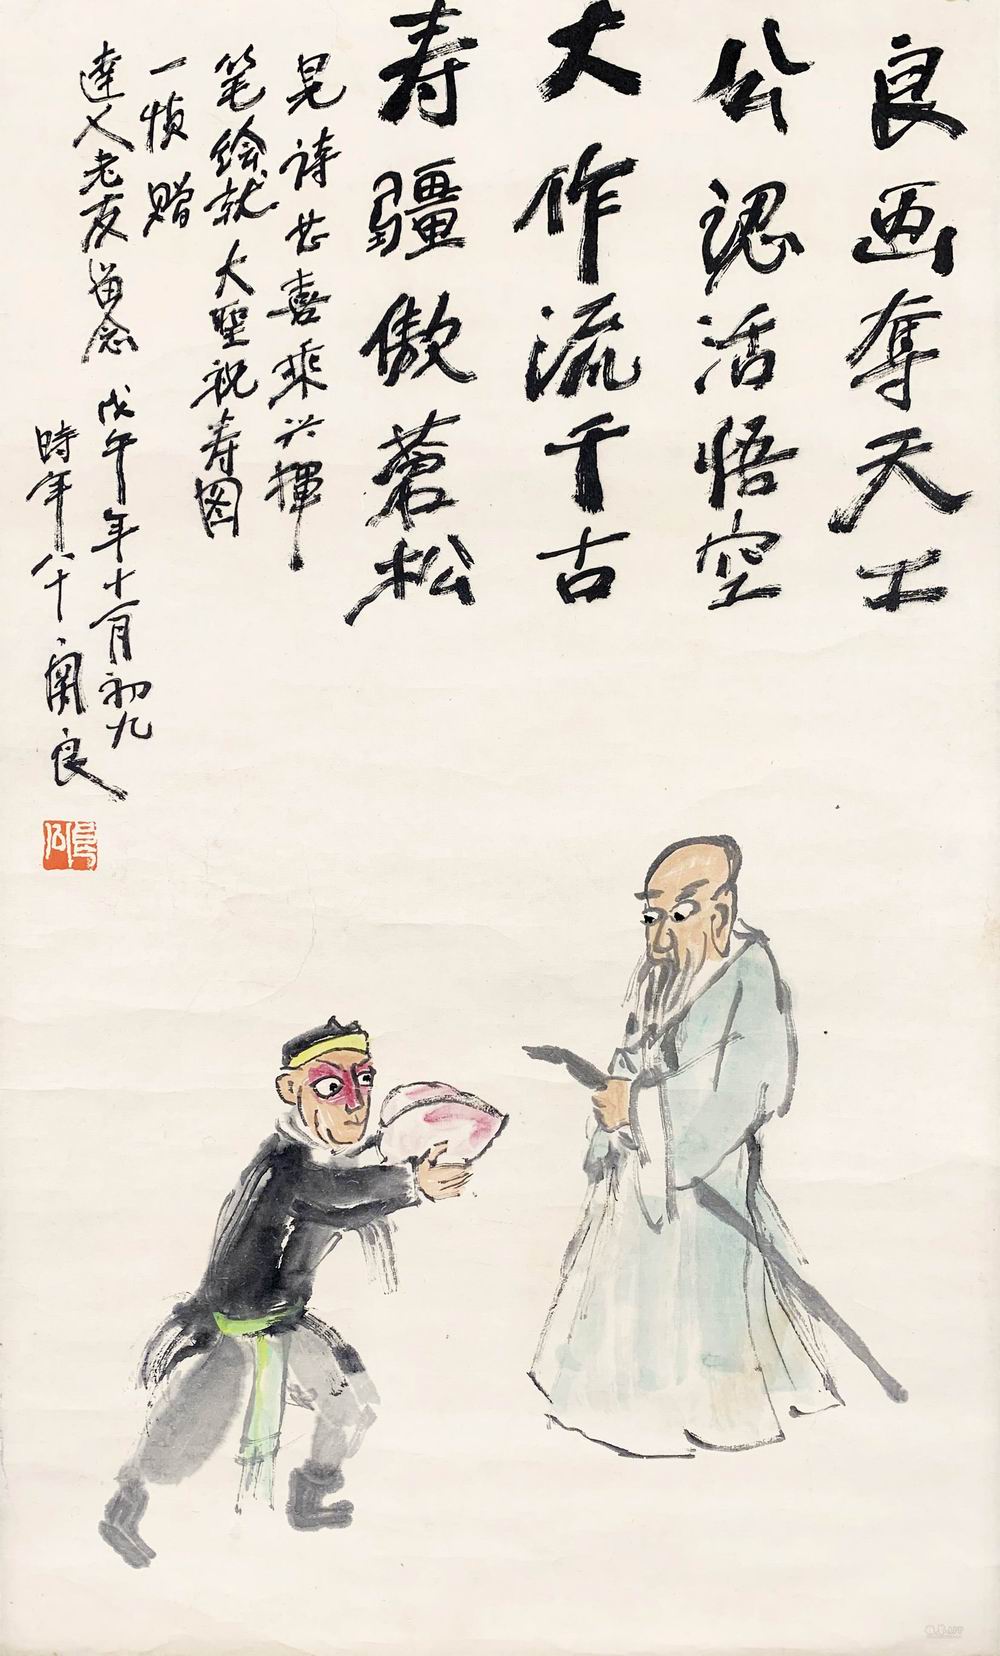 良画夺天工
公认活悟空
大作流千古
寿疆傲苍松
见诗甚喜乘兴挥
笔绘就大聖祝寿图
一帧赠
達人老友留念
戊午年十一月初九
時年八十 關良